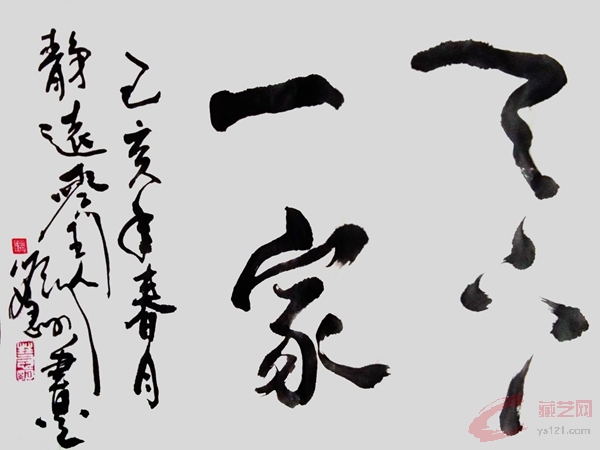 天下
一家
己亥年春月
静遠齋主人
藏艺网
ys121.com